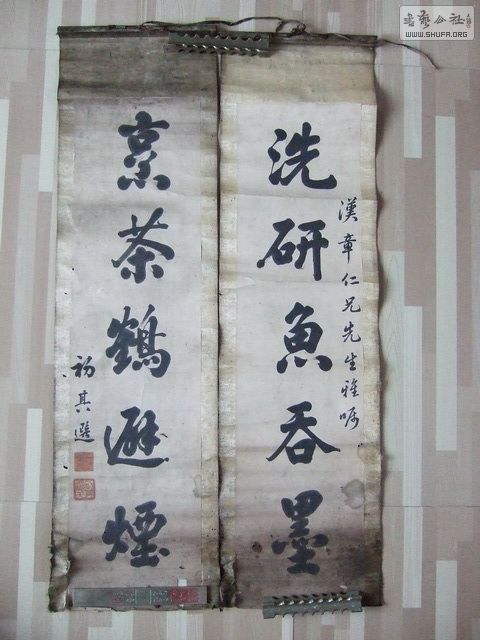 洗研魚吞墨
漢章仁兄先生雅嘱
烹茶鶴避煙
初其選
書藝公社
WWW.SHUFA.ORG